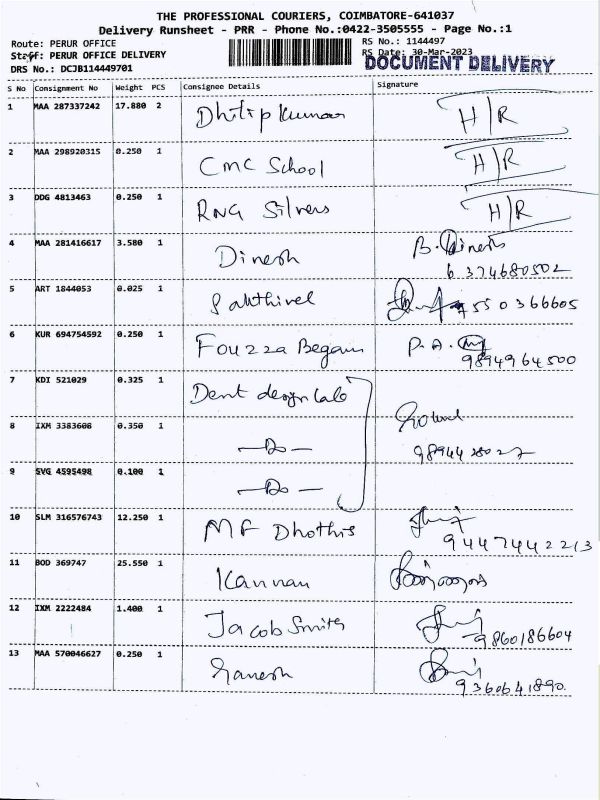 THE PROFESSIONAL COURIERS, COIMBATORE-641037
Delivery Runsheet - PRR - Phone No.:0422-3505555 - Page No.:1
Route: PERUR OFFICE RS No.: 1144497
Staff: PERUR OFFICE DELIVERY RS Date: 30-Mar-2023
DOCUMENT DELIVERY
DRS No.: DCJB114449701
S No Consignment No Weight PCS Consignee Details Signature
1 MAA 287337242 17.880 2 Dhilip Kumar H/R
2 MAA 298920315 0.250 1 CMC School H/R
3 DDG 4813463 0.250 1 RNG Silvers H/R
4 MAA 281416617 3.580 1 Dinesh B. Dinesh
6374680502
5 ART 1844053 0.025 1 Sakthivel 7550366605
6 KUR 694754592 0.250 1 Fouzza Begam P.A.
9894964500
7 KDI 521029 0.325 1 Dent design labs
8 IXM 3383608 0.350 1 —Do—
9 SVG 4595498 0.100 1 —Do—
10 SLM 316576743 12.250 1 MF Dhothis
9447442213
11 BOD 369747 25.550 1 Kannan
12 IXM 2222484 1.400 1 Jacob Smith
9860186604
13 MAA 570046627 0.250 1 Ganesh
9360641890.